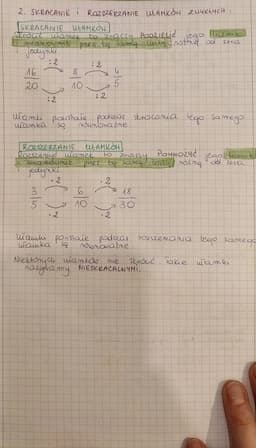 2. SKRACANIE I ROZSZERZANIE UŁAMKÓW ZWYKŁYCH.
SKRACANIE UŁAMKÓW
Skrócić ułamek to znaczy PODZIELIĆ jego licznik
i mianownik przez tę samą liczbę różną od zera
i jedynki
:2 :2
16 8 4
20 10 5
:2 :2
Ułamki powstałe podczas skracania tego samego
ułamka są równoważne
ROZSZERZANIE UŁAMKÓW
Rozszerzyć ułamek to znaczy POMNOŻYĆ jego licznik
i mianownik przez tę samą liczbę różną od zera
i jedynki
·2 ·2
3 6 18
5 10 30
·2 ·2
Ułamki powstałe podczas rozszerzania tego samego
ułamka są równoważne
Niektórych ułamków nie skrócić. Takie ułamki
nazywamy NIESKRACALNYMI.